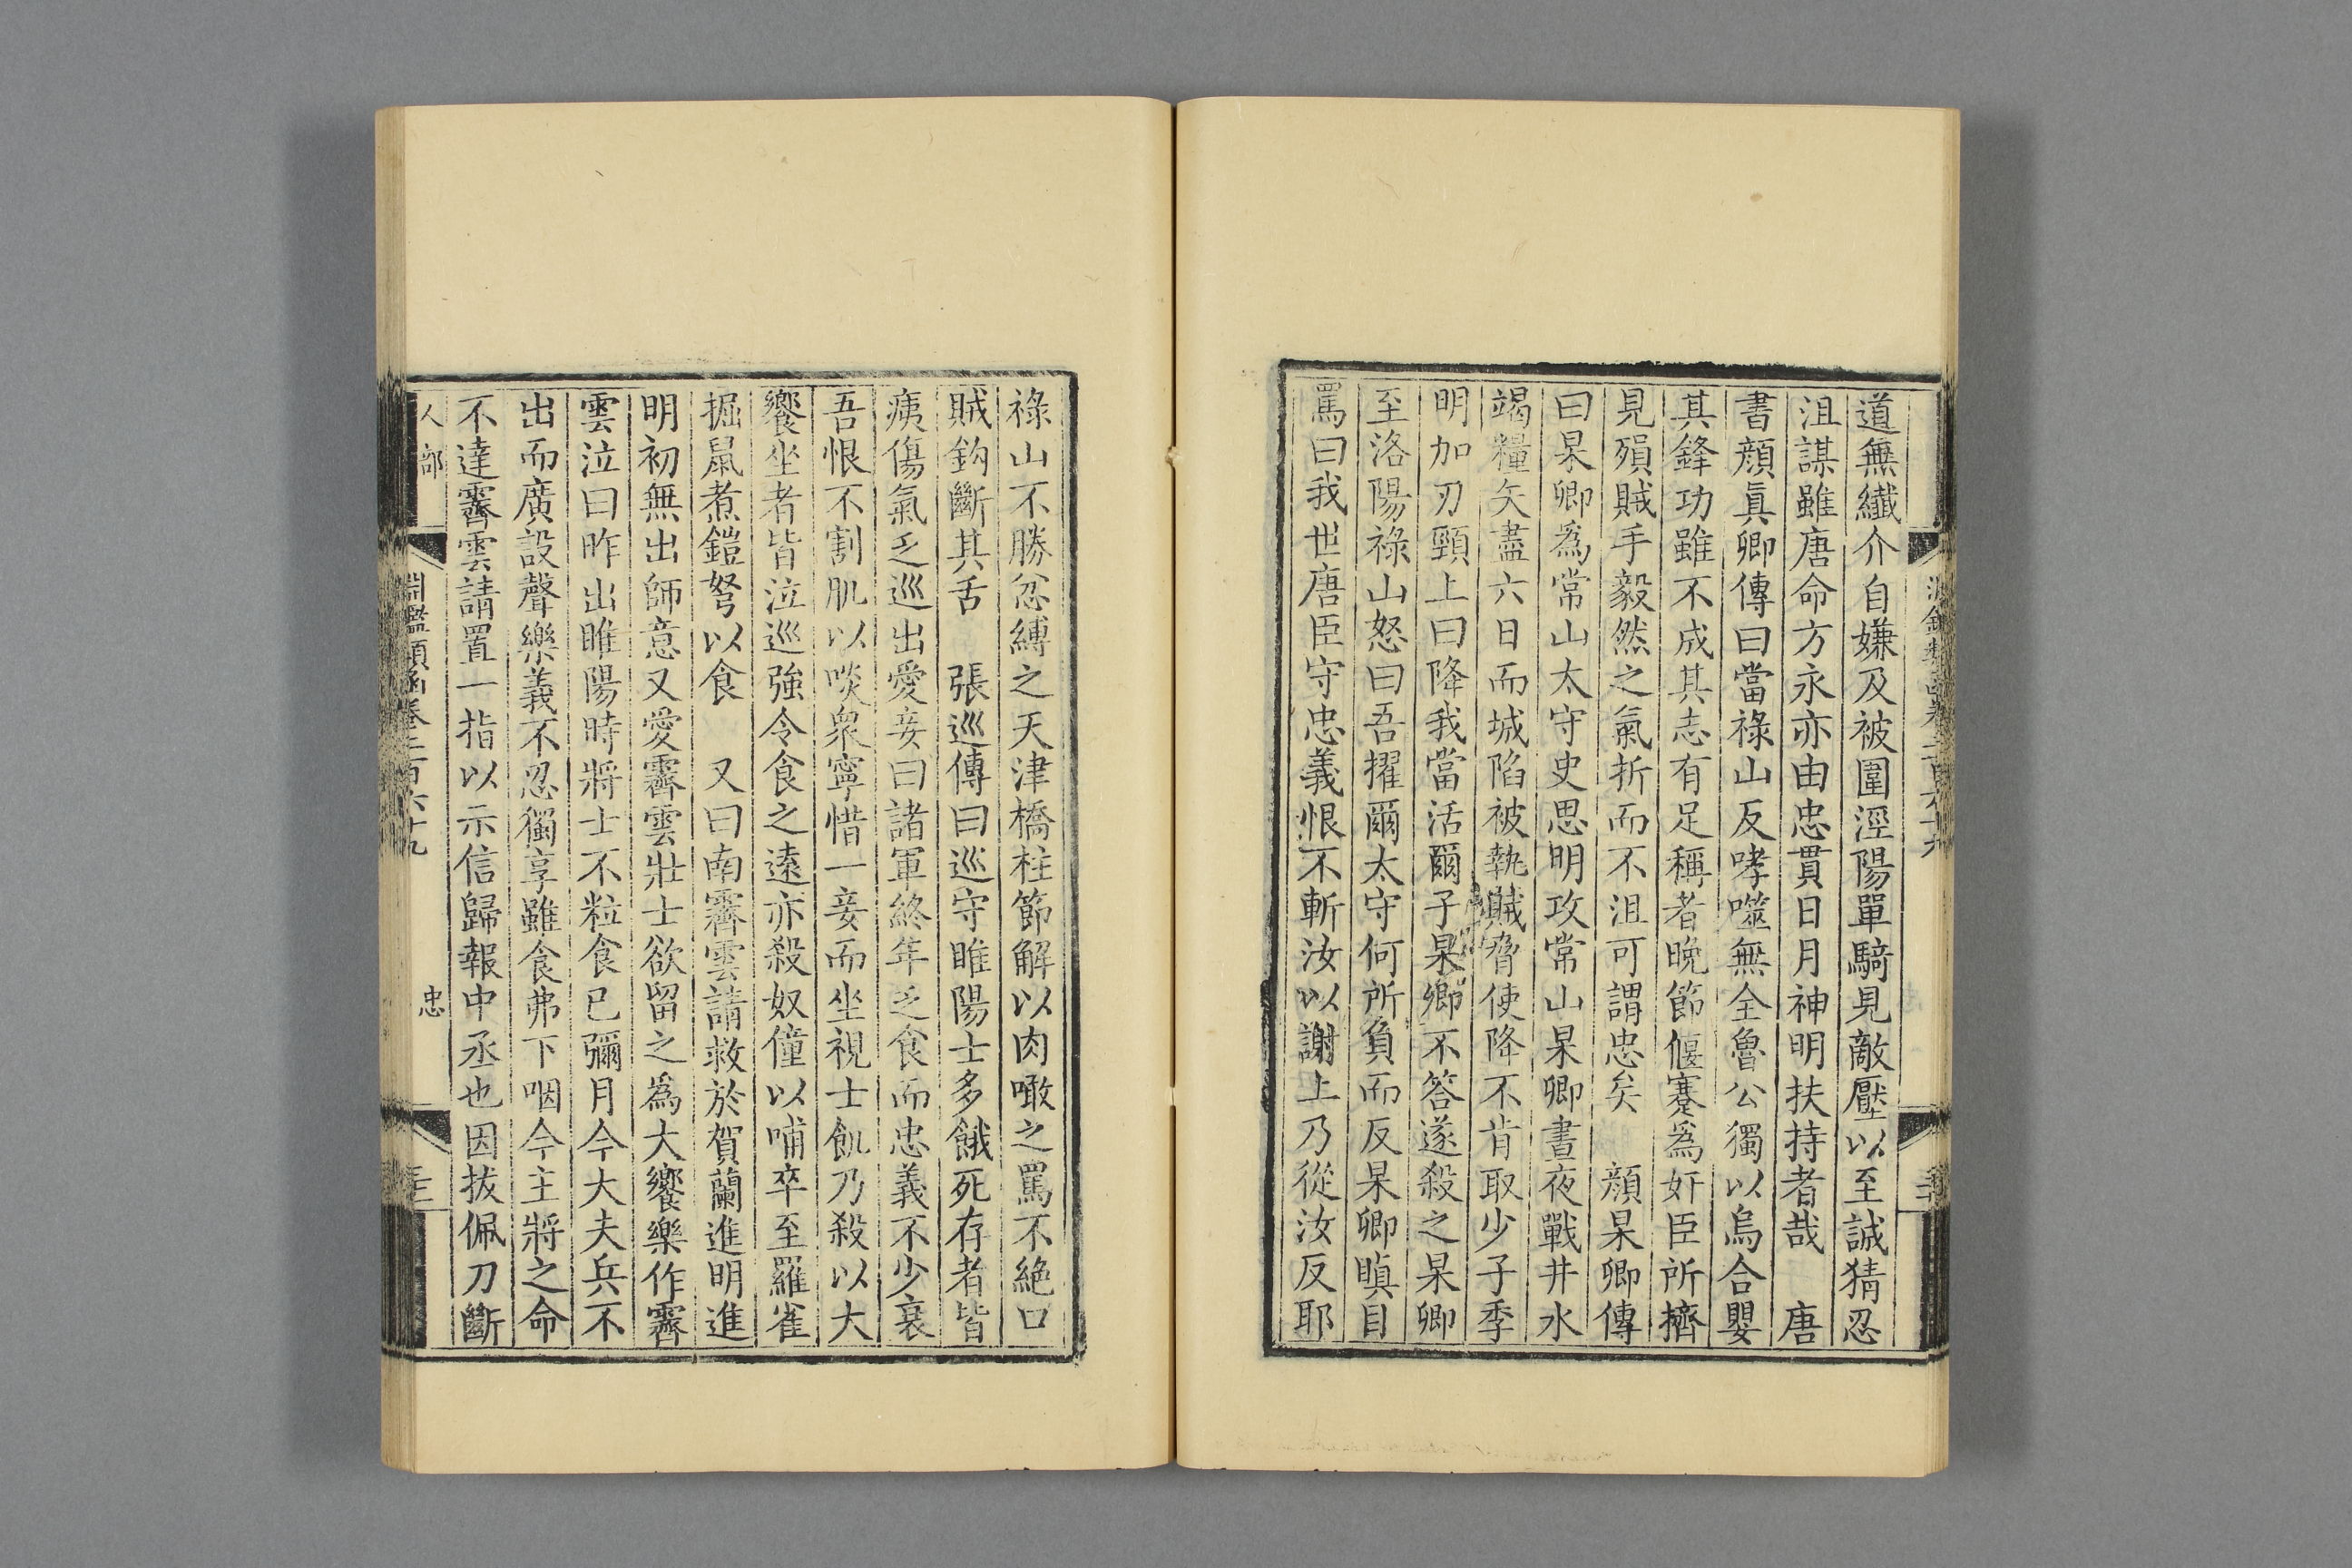 道無纖介自嫌及被圍涇陽單騎見敵壓以至誠猜忍
沮謀雖唐命方永亦由忠貫日月神明扶持者哉　唐
書顔眞卿傳曰當祿山反哮噬無全魯公獨以烏合嬰
其鋒功雖不成其志有足稱者晚節偃蹇爲奸臣所擠
見殞賊手毅然之氣折而不沮可謂忠矣　顔杲卿傳
曰杲卿爲常山太守史思明攻常山杲卿晝夜戰井水
竭糧矢盡六日而城陷被執賊脅使降不肯取少子季
明加刃頸上曰降我當活爾子杲卿不答遂殺之杲卿
至洛陽祿山怒曰吾擢爾太守何所負而反杲卿瞋目
罵曰我世唐臣守忠義恨不斬汝以謝上乃從汝反耶
祿山不勝忿縛之天津橋柱節解以肉噉之罵不絶口
賊鈎斷其舌　張巡傳曰巡守睢陽士多餓死存者皆
痍傷氣乏巡出愛妾曰諸軍終年乏食而忠義不少衰
吾恨不割肌以啖衆寧惜一妾而坐視士飢乃殺以大
饗坐者皆泣巡強令食之遠亦殺奴僮以哺卒至羅雀
掘鼠煮鎧弩以食　又曰南霽雲請救於賀蘭進明進
明初無出師意又愛霽雲壯士欲留之爲大饗樂作霽
雲泣曰昨出睢陽時將士不粒食已彌月今大夫兵不
出而廣設聲樂義不忍獨享雖食弗下咽今主將之命
不達霽雲請置一指以示信歸報中丞也因拔佩刀斷
人部
淵鑑類函卷二百六十九
忠